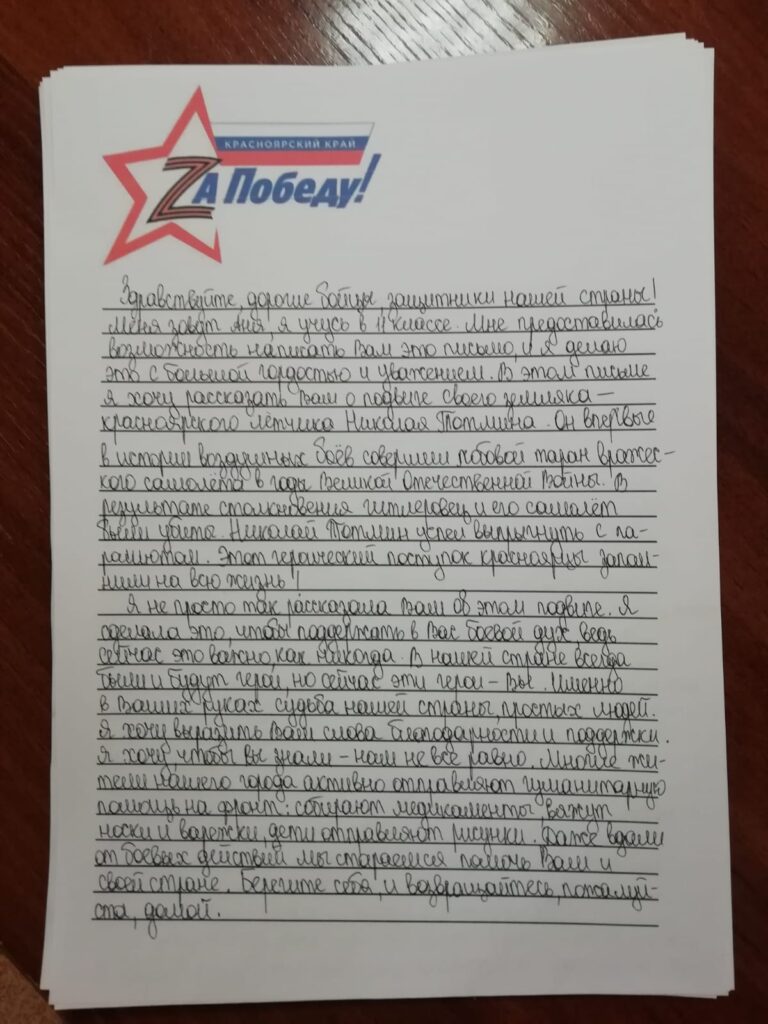 КРАСНОЯРСКИЙ КРАЙ
ZА Победу!
Здравствуйте, дорогие бойцы, защитники нашей страны!
Меня зовут Аня, я учусь в 11 классе. Мне предоставилась
возможность написать Вам это письмо, и я делаю
это с большой гордостью и уважением. В этом письме
я хочу рассказать Вам о подвиге своего земляка –
красноярского лётчика Николая Тотмина. Он впервые
в истории воздушных боёв совершил лобовой таран вражес-
кого самолёта в годы Великой Отечественной Войны. В
результате столкновения гитлеровец и его самолёт
были убиты. Николай Тотмин успел выпрыгнуть с па-
рашютом. Этот героический поступок красноярцы запом-
нили на всю жизнь!
Я не просто так рассказала Вам об этом подвиге. Я
сделала это, чтобы поддержать в Вас боевой дух, ведь
сейчас это важно, как никогда. В нашей стране всегда
были и будут герои, но сейчас эти герои – Вы. Именно
в Ваших руках судьба нашей страны, простых людей.
Я хочу выразить Вам слова благодарности и поддержки.
Я хочу, чтобы вы знали – нам не все равно. Многие жи-
тели нашего города активно отправляют гуманитарную
помощь на фронт: собирают медикаменты, вяжут
носки и варежки, дети отправляют рисунки. Даже вдали
от боевых действий мы стараемся помочь Вам и
своей стране. Берегите себя, и возвращайтесь, пожалуй-
ста, домой.